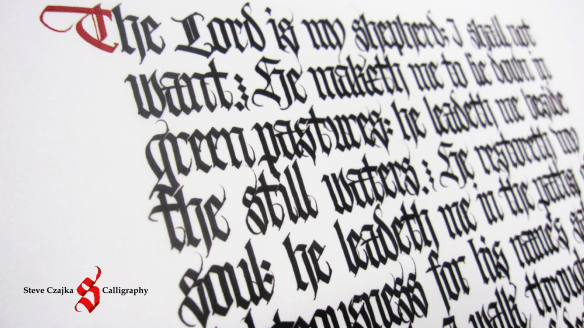 The Lord is my shepherd: I shall not
want: He maketh me to lie down in
green pastures: he leadeth me beside
the still waters: He restoreth my
soul: he leadeth me in the paths
for his name's
walk
Steve Czajka S Calligraphy